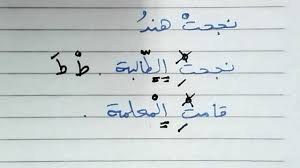 نجحتْ هندُ
نجحتِ الطَّالبة . طْ طَ
قامتِ الْمعلمة .